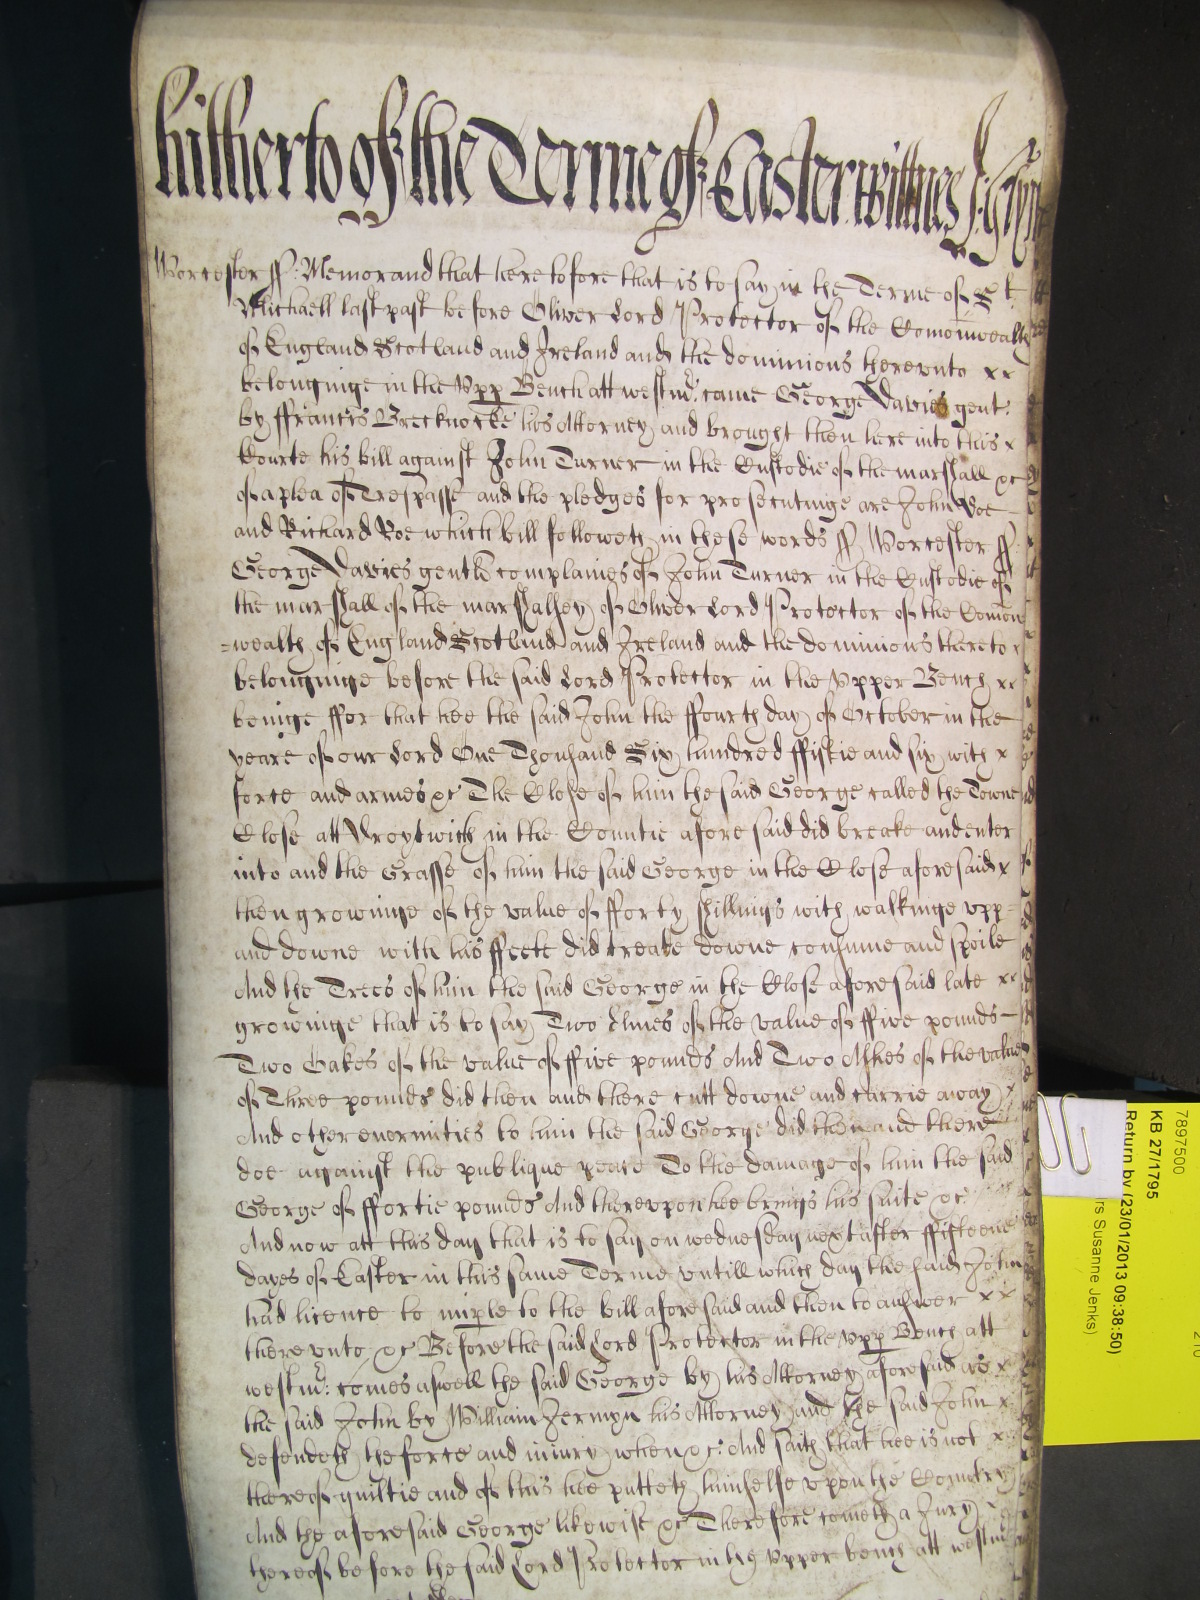 hitherto of the Terme of Easter wittnes J: Glyn
Worcester ss: Memorand that heretofore that is to say in the Terme of St
Michaell last past before Oliver Lord Protector of the Comonwealth
of England Scotland and Ireland and the dominions thereunto xx
belonginge in the Upp Bench att westmr: came George Davies gent:
by ffrancis Brecknocke his Attorney and brought then here into this x
Courte his bill against John Turner in the Custodie of the marshall &c
of a plea of Trespasse and the pledges for prosecutinge are John Doe
and Richard Roe which bill followeth in these words ss Worcester ss
George Davies gentle complaines of John Turner in the Custodie of
the marshall of the marshalsey of Oliver Lord Protector of the Comon
=wealth of England Scotland and Ireland and the dominions thereto x
belonginge before the said Lord Protector in the Upper Bench xx
beinge ffor that hee the said John the ffourth day of October in the
yeare of our Lord One Thousand Six hundred ffiftie and six with x
force and armes &c The Close of him the said George called the Towne
Close att Droytwich in the Countie aforesaid did breake and enter
into and the Grasse of him the said George in the Close aforesaid x
then growinge of the value of fforty shillings with walkinge upp
and downe with his ffeete did treade downe consume and spoile
And the Trees of him the said George in the Close aforesaid late xx
growinge that is to say Two Elmes of the value of ffive pounds
Two Oakes of the value of ffive pounds And Two Ashes of the value
of Three pounds did then and there cutt downe and carrie away x
And other enormities to him the said George did then and there
doe against the publique peace To the damage of him the said
George of ffortie pounds And thereupon hee brings his suite &c
And now att this day that is to say on wednesday next after ffifteene
dayes of Easter in this same Terme untill which day the said John
had licence to imple to the bill aforesaid and then to answer xx
thereunto &c Before the said Lord Protector in the Upp Bench att
westmr: comes aswell the said George by his Attorney aforesaid as x
the said John by William Jermyn his Attorney and the said John x
defendeth the force and iniury when &c: And saith that hee is not x
thereof guiltie and of this hee putteth himselfe upon the Country
And the aforesaid George likewise &c Therefore cometh a Jury
thereof before the said Lord Protector in the Upper bench att westmr
7897500
KB 27/1795
Return by (23/01/2013 09:38:50)
rs Susanne Jenks)